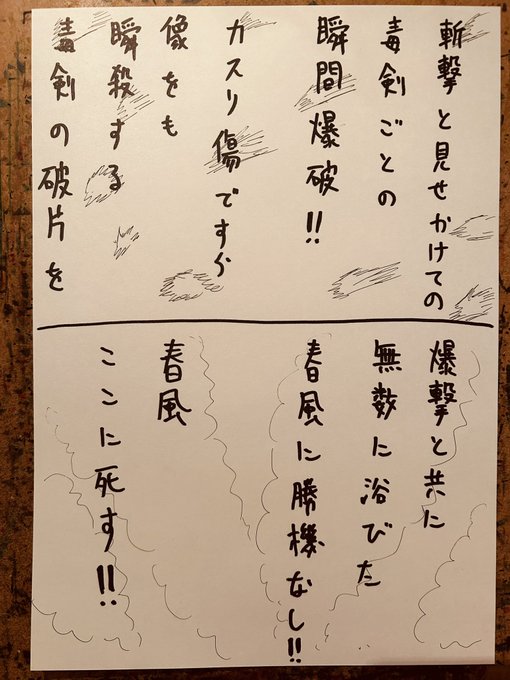 斬撃と見せかけての
毒剣ごとの
瞬間爆破!!
カスリ傷ですら
像をも
瞬殺する
毒剣の破片を
爆撃と共に
無数に浴びた
春風に勝機なし!!
春風
ここに死す!!